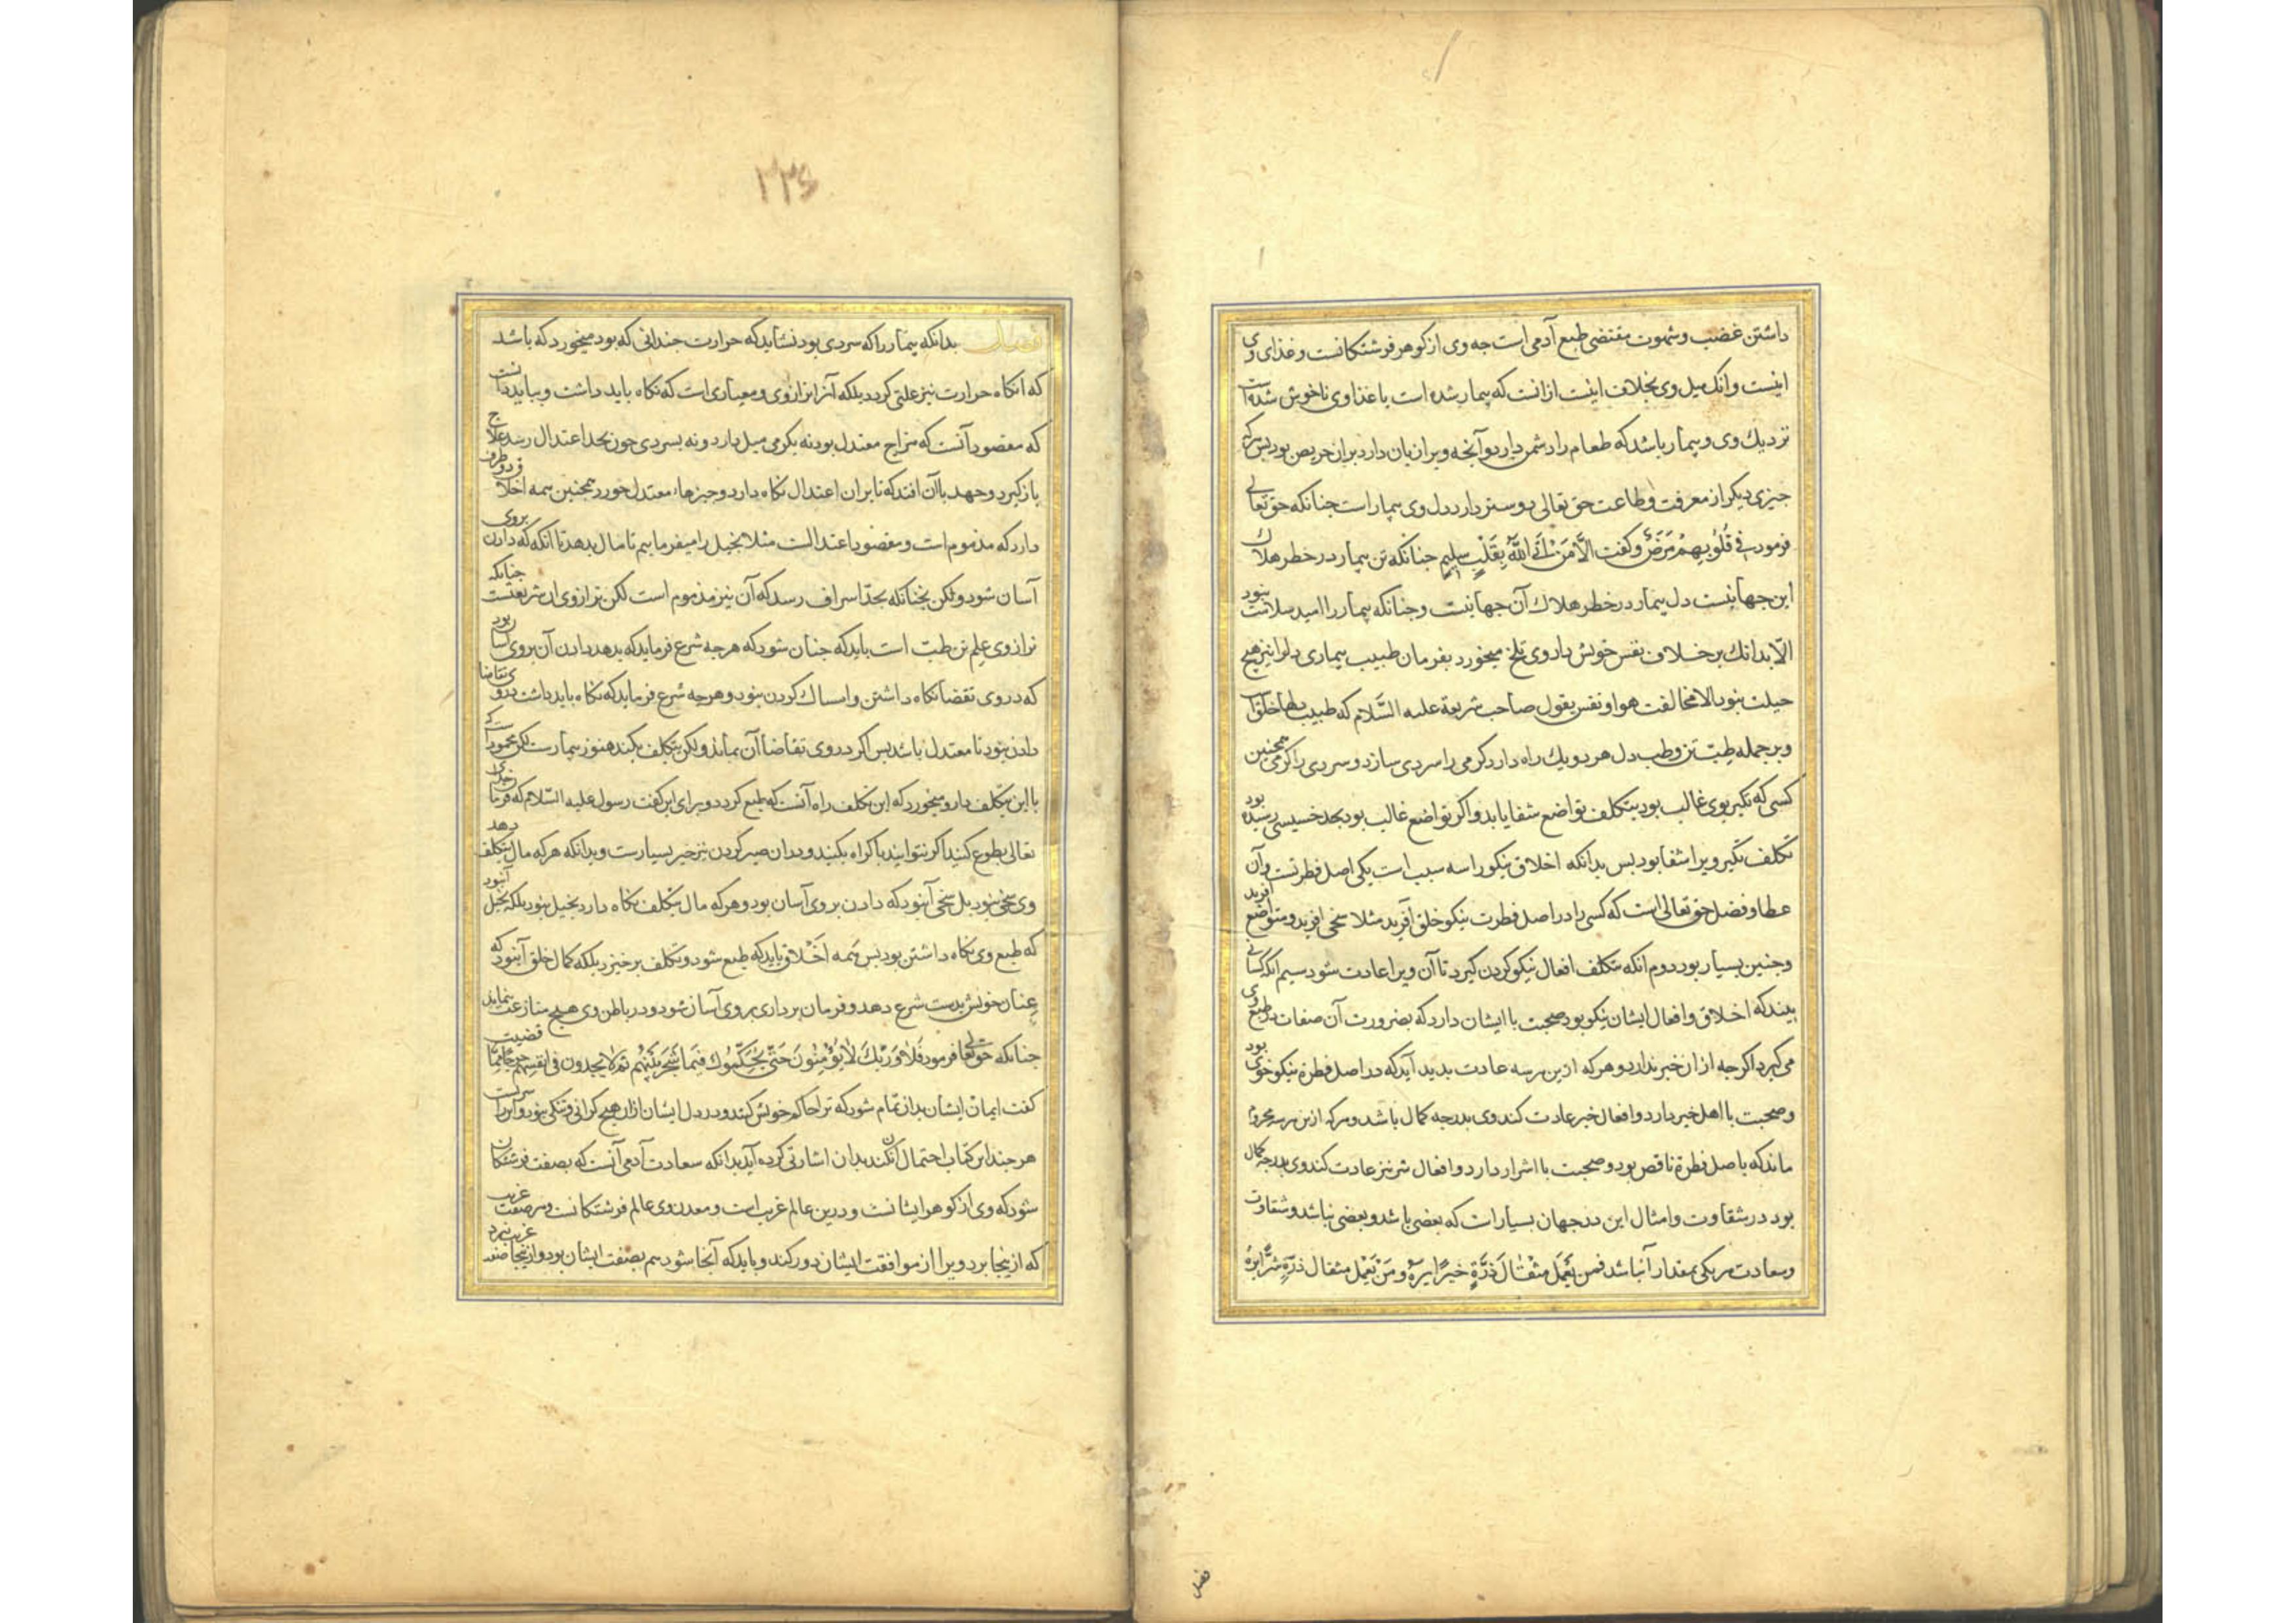 داشتن غضب و شهوت مقتضی طبع آدمی است جه وی از کوهر فرشتکانست و غذای وی
اینست وانک میل وی بخلاف اینست ازانست که بیمار شده است با غذا وی ناخوش شده است
نزدیك وی و بیمار باشد که طعام را دشمن دارد و آنجه ویرا زیان دارد بران حریص بود بس هرکه
جیزی دیکر از معرفت و طاعت حق تعالی دوستر دارد دل وی بیمار است جنانکه حق تعالی
فرمود فی قُلُوبِهِمْ مَرَضٌ و کفت الاَّ مَنْ اَتَی اللّٰهَ بِقَلْبٍ سلِیمٍ جنانکه تن بیمار در خطر هلاك
این جهانیست دل بیمار در خطر هلاك آن جهانیت و جنانکه بیمار را امید سلامت نبود
الّا بدانك بر خلاف نفس خویش داروی تلخ میخورد بفرمان طبیب بیماری دلرا نیز هیج
حیلت نبود الا مخالفت هوا و نفس بقول صاحب شریعة علیه السَّلام که طبیب دلهاء خلق است
و بر جمله طِبّ تن و طب دل هر دو یك راه دارد کرمی را سردی سازد و سردی را کرمی همجنین
کسی که تکبر بوی غالب بود بتکلف تواضع شفا یابد و اکر تواضع غالب بود بحد خسیسی رسیده بود
تکلف تکبر ویرا شفا بود بس بدانکه اخلاق نیکو را سه سبب است یکی اصل فطرتست و آن
عطا و فضل حق تعالی است که کسی را در اصل فطرت نیکو خلق آفرید مثلا سخی آفرید و متواضع آفرید
و جنین بسیار بود دوم انکه بتکلف افعال نیکو کردن کیرد تا آن ویرا عادت شود سیم انکه کسانی
بیند که اخلاق و افعال ایشان نیکو بود صحبت با ایشان دارد که بضرورت آن صفات در طبع وی
می کیرد اکرجه ازان خبر ندارد و هرکه ازین هر سه عادت بدید آید که در اصل فطرة نیکو خوی بود
و صحبت با اهل خیر دارد و افعال خیر عادت کند وی بدرجه کمال باشد و هرکه ازین هر سه محروم
ماند که باصل فطرة ناقص بود و صحبت با اشرار دارد و افعال شر نیز عادت کند وی بدرجه کمال
بود در شقاوت و امثال این در جهان بسیار است که بعضی باشد و بعضی نباشد و شقاوت
و سعادت هر یکی بمقدار آن باشد فمن یَعْمَل مِثْقَالَ ذَرَّةٍ خیرًا یرهُ و مَنْ یَعْمَل مثقال ذرَّةٍ شَرًّا یرَهُ
فصل
٢٣٤
فصل بدانکه بیمار را که سردی بود نشاید که حرارت جندانی که بود میخورد که باشد
که انکاه حرارت نیز علتی کردد بلکه آنرا ترازوی و معیاری است که نکاه باید داشت و بباید دانست
که مقصود آنست که مزاج معتدل بود نه بکرمی میل دارد و نه بسردی جون بحد اعتدال رسد علاج
باز کیرد و جهد باآن افتد که تا بران اعتدال نکاه دارد و جیزهاء معتدل خورد همجنین همه اخلاق دو طرف
دارد که مذموم است و مقصود اعتدالست مثلا بخیل را میفرماییم تا مال بدهد تا انکه که دادن بروی
آسان شود ولکن بجنانکه بحدّ اسراف رسد که آن نیز مذموم است لکن ترازوی ان شریعتست جنانکه
ترازوی علم تن طبّ است باید که جنان شود که هرجه شرع فرماید که بدهد دادن آن بروی آسان بود
که در وی تقضا نکاه داشتن و امساك کردن نبود و هرجه شرع فرماید که نکاه باید داشت در وی تقاضا
دادن نبود تا معتدل باشد بس اکر در وی تقاضا آن بماند ولکن بتکلف بکند هنوز بیمارست لکن محمودست که
با این بتکلف دارو میخورد که این تکلف راه آنست که طبع کردد و برای این کفت رسول علیه السّلام که فرمان خدای
تعالی بطوع کنید اکر نتوانید باکراه بکنید و دران صبر کردن نیز خیر بسیارست و بدانکه هرکه مال بتکلف دهد
وی سخی نبود بل سخی آن بود که دادن بروی آسان بود و هرکه مال بتکلف نکاه دارد بخیل نبود بلکه بخیل آن بود
که طبع وی نکاه داشتن بود بس همه اَخْلاق باید که طبع شود و تکلف برخیزد بلکه کمال خلق آن بود که
عِنان خویش بدست شرع دهد و فرمان برداری بروی آسان شود و در باطن وی هیج منازعت نماند
جنانکه حق تعالی فرمود فَلَا وَرَبِّكَ لَا یُؤْمِنُونَ حَتَّی یُحَکِّمُوكَ فِیمَا شَجَرَ بَیْنَهُم ثم لا یجدون فی انفسهم حرجا مما قضیت
کفت ایمان ایشان بدان تمام شود که ترا حاکم خویش کنند و در دل ایشان ازان هیج کرانی و تنکی نبود و این را سریست
هرجند این کتاب احتمال آن نکند بدان اشارتی کرده آید بدانکه سعادت آدمی آنست که بصفت فرشتکان
شود که وی از کوهر ایشانست و درین عالم غریب است و معدن وی عالم فرشتکانست و هر صفت غریب
که ازینجا برد ویرا از موافقت ایشان دور کند و باید که آنجا شود هم بصفت ایشان بود و ازینجا صفت غریب نبرد